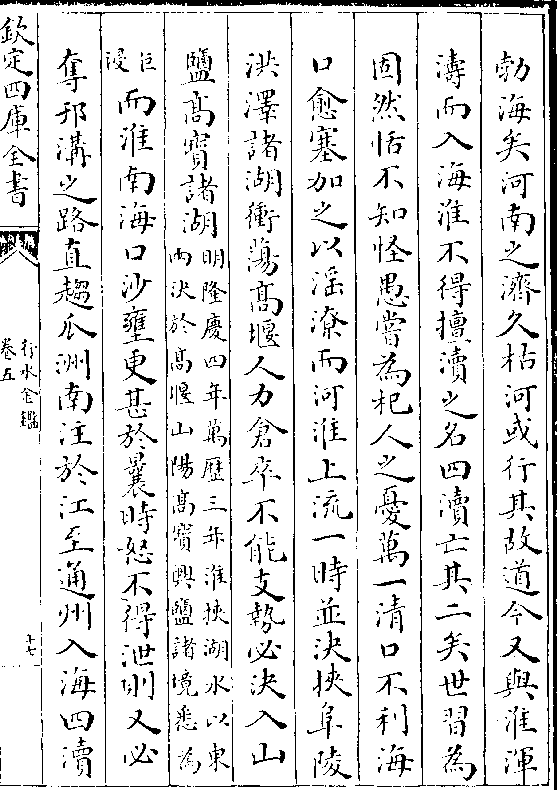 勃海矣河南之濟久枯河或行其故道今又與淮渾
濤而入海淮不得擅瀆之名四瀆亡其二矣世習為
固然恬不知怪愚嘗為杞人之憂萬一清口不利海
口愈塞加之以滛潦而河淮上流一時並決挾阜陵
洪澤諸湖衝蕩髙堰人力倉卒不能支勢必決入山
鹽髙寳諸湖明隆慶四年萬歴三年淮挾湖水以東
内決於髙堰山陽髙寳興鹽諸境悉為
巨
浸而淮南海口沙壅更甚於曩時怒不得泄則又必
奪邗溝之路直趨瓜洲南注於江至通州入海四瀆
欽定四庫全書
行水金鑑
卷五
十七